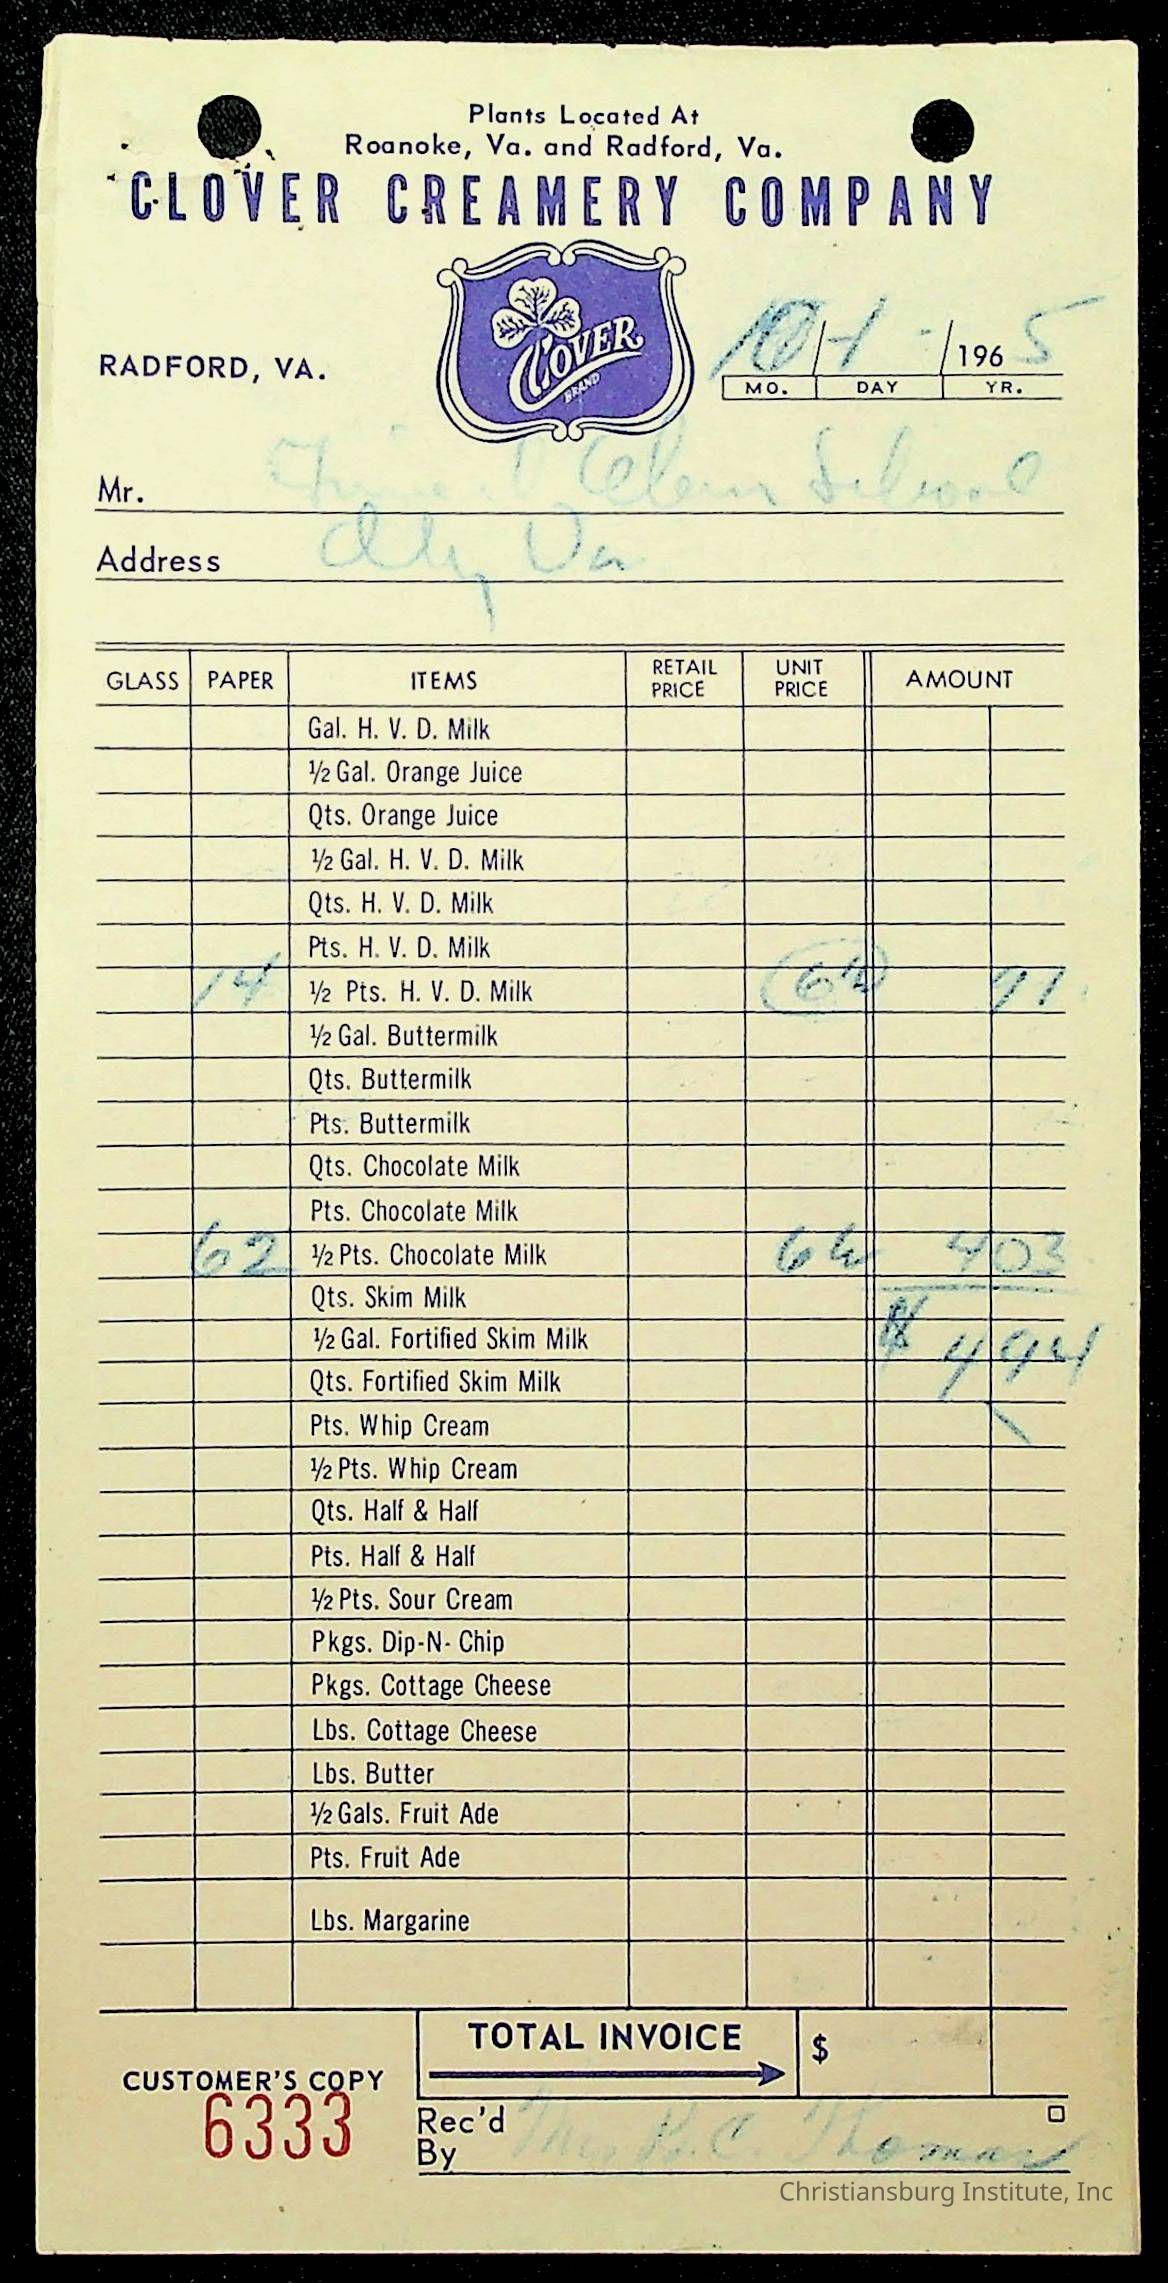 Plants Located At
Roanoke, Va. and Radford, Va.
CLOVER CREAMERY COMPANY
CLOVER
BRAND
RADFORD, VA.
10/1/1965
MO. DAY YR.
Mr. Elem School
Address Va
GLASS PAPER ITEMS RETAIL PRICE UNIT PRICE AMOUNT
Gal. H. V. D. Milk
½ Gal. Orange Juice
Qts. Orange Juice
½ Gal. H. V. D. Milk
Qts. H. V. D. Milk
Pts. H. V. D. Milk
14 ½ Pts. H. V. D. Milk 6½ 91
½ Gal. Buttermilk
Qts. Buttermilk
Pts. Buttermilk
Qts. Chocolate Milk
Pts. Chocolate Milk
62 ½ Pts. Chocolate Milk 6½ 403
Qts. Skim Milk
½ Gal. Fortified Skim Milk $ 494
Qts. Fortified Skim Milk
Pts. Whip Cream
½ Pts. Whip Cream
Qts. Half & Half
Pts. Half & Half
½ Pts. Sour Cream
Pkgs. Dip-N-Chip
Pkgs. Cottage Cheese
Lbs. Cottage Cheese
Lbs. Butter
½ Gals. Fruit Ade
Pts. Fruit Ade
Lbs. Margarine
TOTAL INVOICE $
CUSTOMER'S COPY
6333
Rec'd By Mrs R. C. Thomas
Christiansburg Institute, Inc